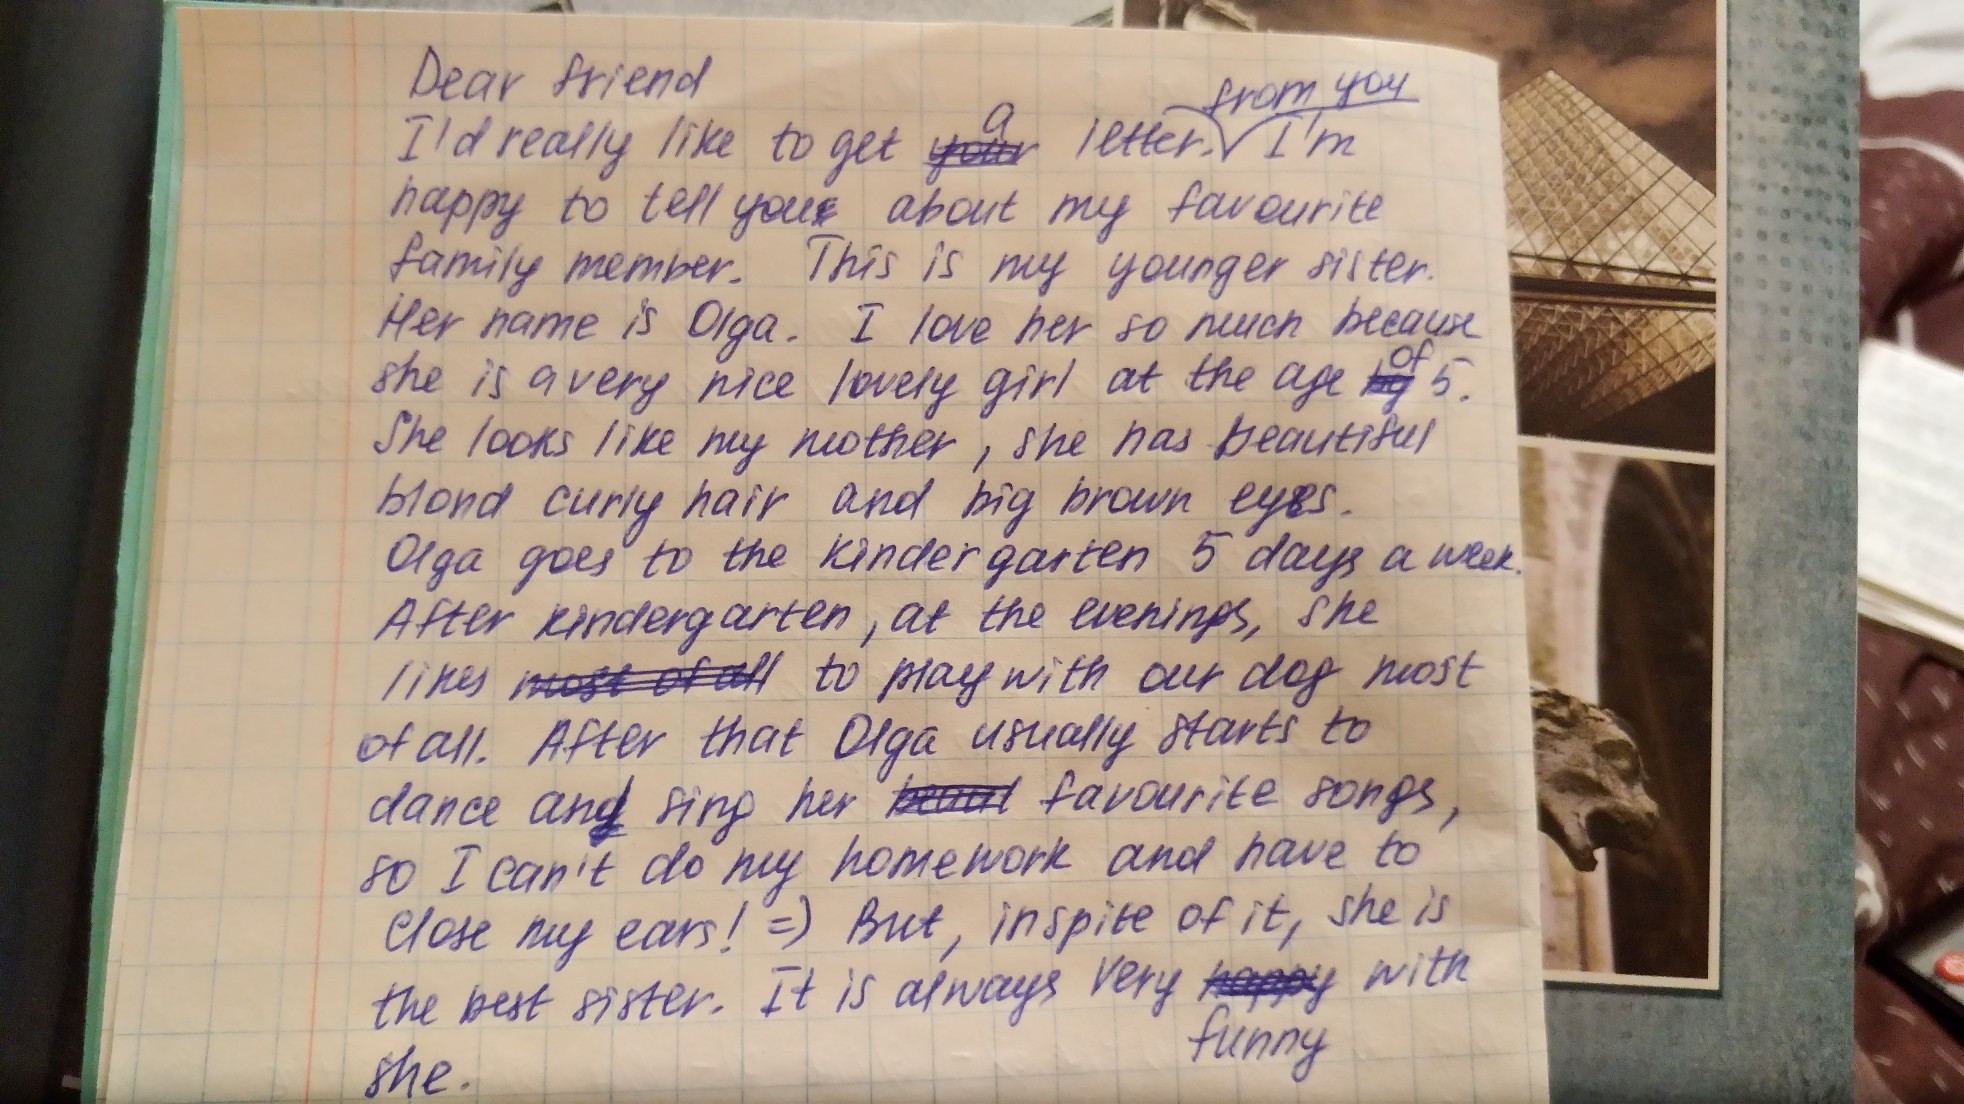 Dear friend
I'd really like to get a letter from you. I'm
happy to tell you about my favourite
family member. This is my younger sister.
Her name is Olga. I love her so much because
she is a very nice lovely girl at the age of 5.
She looks like my mother, she has beautiful
blond curly hair and big brown eyes.
Olga goes to the kindergarten 5 days a week.
After kindergarten, at the evenings, she
likes to play with our dog most
of all. After that Olga usually starts to
dance and sing her favourite songs,
so I can't do my homework and have to
close my ears! =) But, inspite of it, she is
the best sister. It is always very funny with
she.